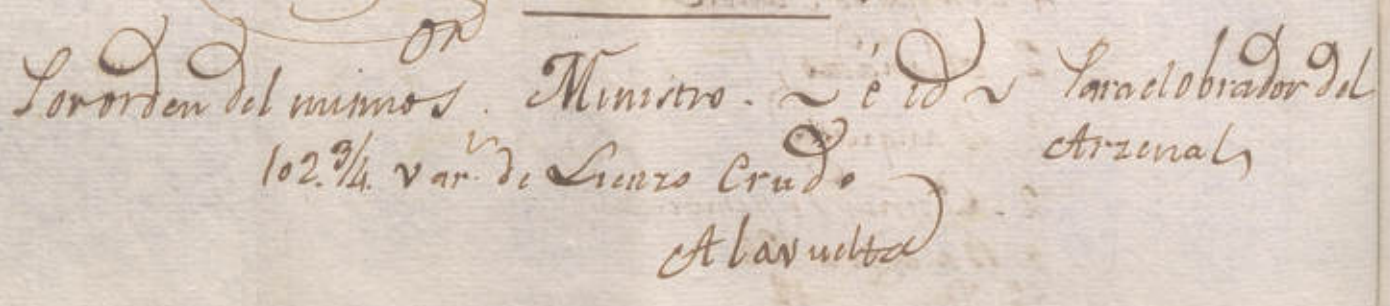 Por orden del mismo s.or Ministro. ~ é id ~ Para el obrador del
Arzenal
102.3/4. var.s de Lienzo Crudo
A la vuelta